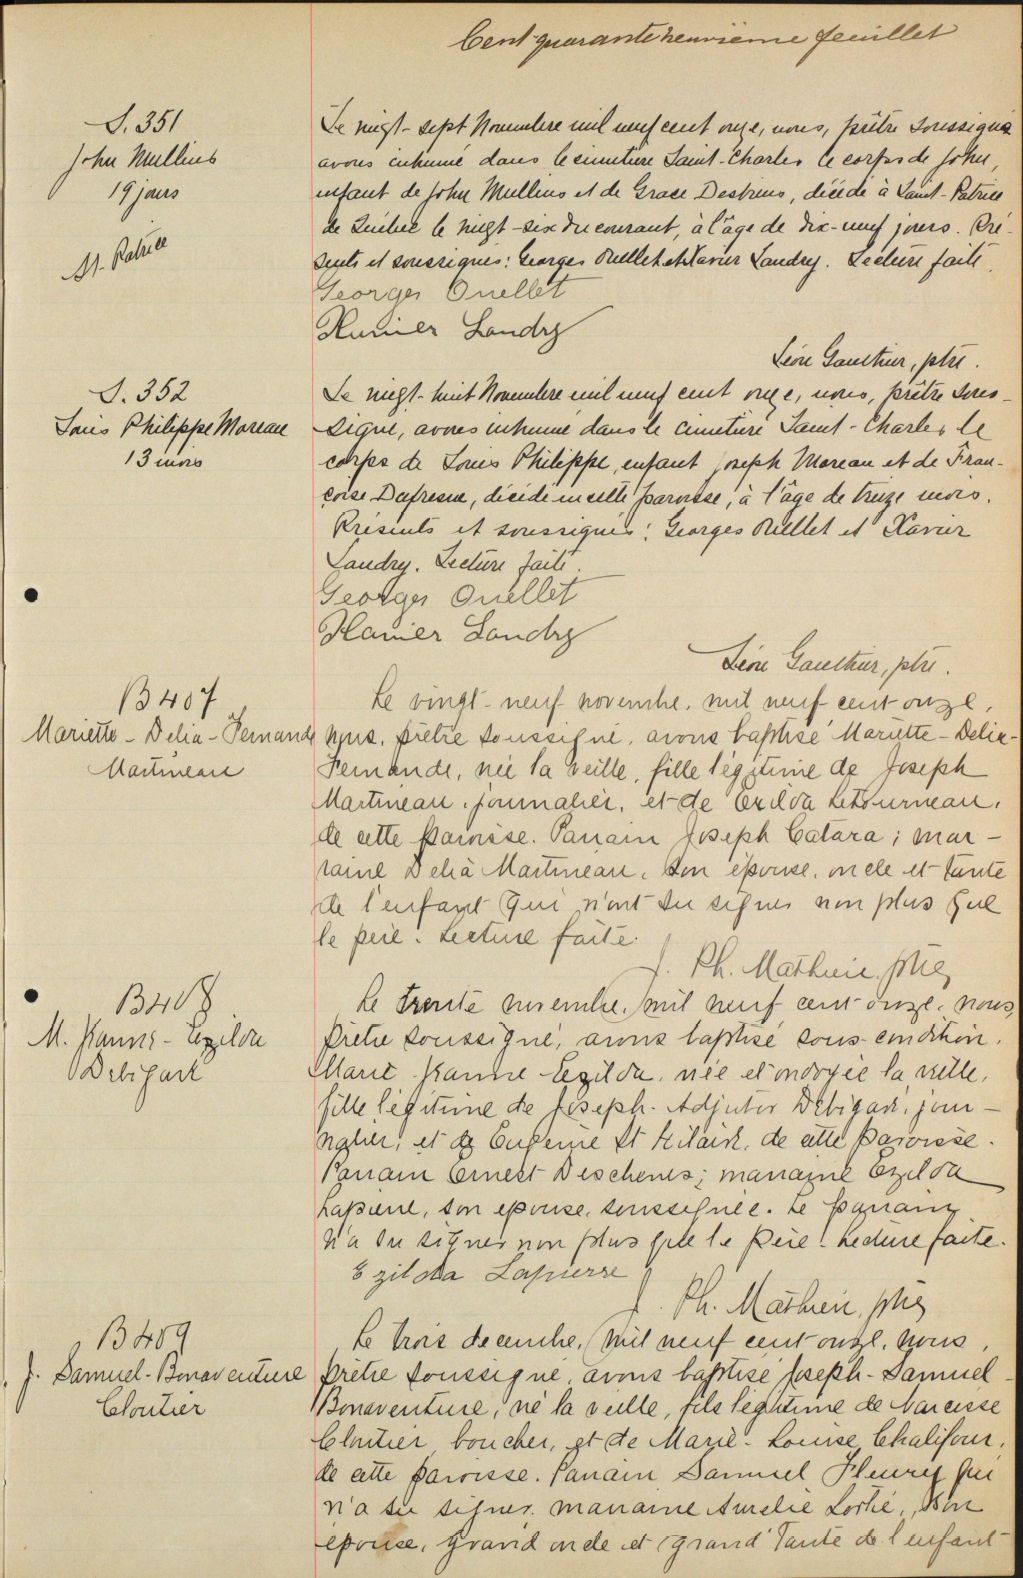 Cent-quarante neuvième feuillet
S. 351
John Mullins
19 jours
St. Patrice
Le vingt-sept Novembre mil neuf cent onze, nous, prêtre soussigné
avons inhumé dans le cimetière Saint-Charles le corps de John,
enfant de John Mullins et de Grace Desbiens, décédé à Saint-Patrice
de Québec le vingt-six du courant, à l'âge de dix-neuf jours. Pré-
sents et soussignés: Georges Ouellet et Xavier Landry. Lecture faite.
Georges Ouellet
Xavier Landry
Léon Gauthier, ptre.
S. 352
Louis Philippe Moreau
13 mois
Le vingt-huit Novembre mil neuf cent onze, nous, prêtre sous-
signé, avons inhumé dans le cimetière Saint-Charles le
corps de Louis Philippe, enfant Joseph Moreau et de Fran-
çoise Dufresne, décédé en cette paroisse, à l'âge de treize mois.
Présents et soussignés: Georges Ouellet et Xavier
Landry. Lecture faite.
Georges Ouellet
Xavier Landry
Léon Gauthier, ptre.
B 407
Mariette-Delia-Fernande
Martineau
Le vingt-neuf novembre, mil neuf cent onze,
nous, prêtre soussigné, avons baptisé Mariette-Delia-
Fernande, née la veille, fille légitime de Joseph
Martineau, journalier, et de Exilda Letourneau,
de cette paroisse. Parrain Joseph Catara; mar-
raine Delia Martineau, son épouse, oncle et tante
de l'enfant qui n'ont su signer non plus que
le père. Lecture faite.
J. Ph. Mathieu, ptre
B 408
M. Jeanne-Ezilda
Debigaré
Le trente novembre, mil neuf cent onze, nous,
prêtre soussigné, avons baptisé sous-condition,
Marie Jeanne-Ezilda, née et ondoyée la veille,
fille légitime de Joseph-Adjutor Debigaré, jour-
nalier, et de Eugénie St Hilaire, de cette paroisse.
Parrain Ernest Deschenes; marraine Ezilda
Lapierre, son épouse, soussignée. Le parrain
n'a su signer non plus que le père. Lecture faite.
Ezilda Lapierre
J. Ph. Mathieu, ptre
B 409
J. Samuel-Bonaventure
Cloutier
Le trois decembre, mil neuf cent onze, nous,
prêtre soussigné, avons baptisé Joseph-Samuel-
Bonaventure, né la veille, fils légitime de Narcisse
Cloutier, boucher, et de Marie-Louise Chalifour,
de cette paroisse. Parrain Samuel Fleury qui
n'a su signer, marraine Aurelie Lortie, son
épouse, grand oncle et grand'tante de l'enfant